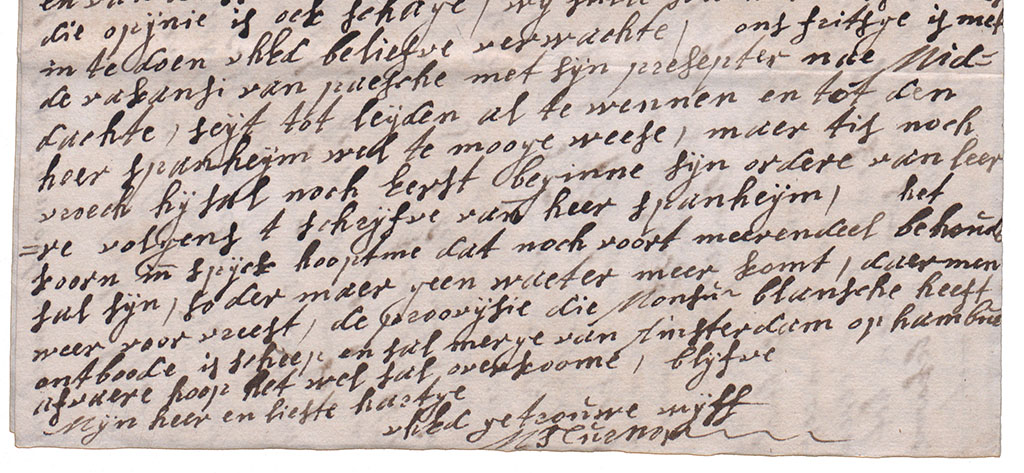 die opijnie is ock schaije, wij
in te doen uhEd beliefve verwachte, ons fritsge is met
de vakansi van paesche met sijn presepter nae Mid=
dachte, seijt tot leijden al te wennen en tot den
heer spanheijm wel te mooge weese, maer tis noch
vroech hij sal noch eerst beginne sijn ordere van leer
=re volgens t schrijfve van heer spanheijm, het
koorn in spijck hooptme dat noch voort meerendeel behoude
sal sijn, so der maer geen waeter meer komt, daermen
weer voor vreest, de provijsie die Monsu blansche heeft
ontboode is scheep en sal merge van Amsterdam op hambue
afvaere hoop het wel sal overkoome, blijfve
Mijn heer en liefste hartge
uhEd getrouwe wijff